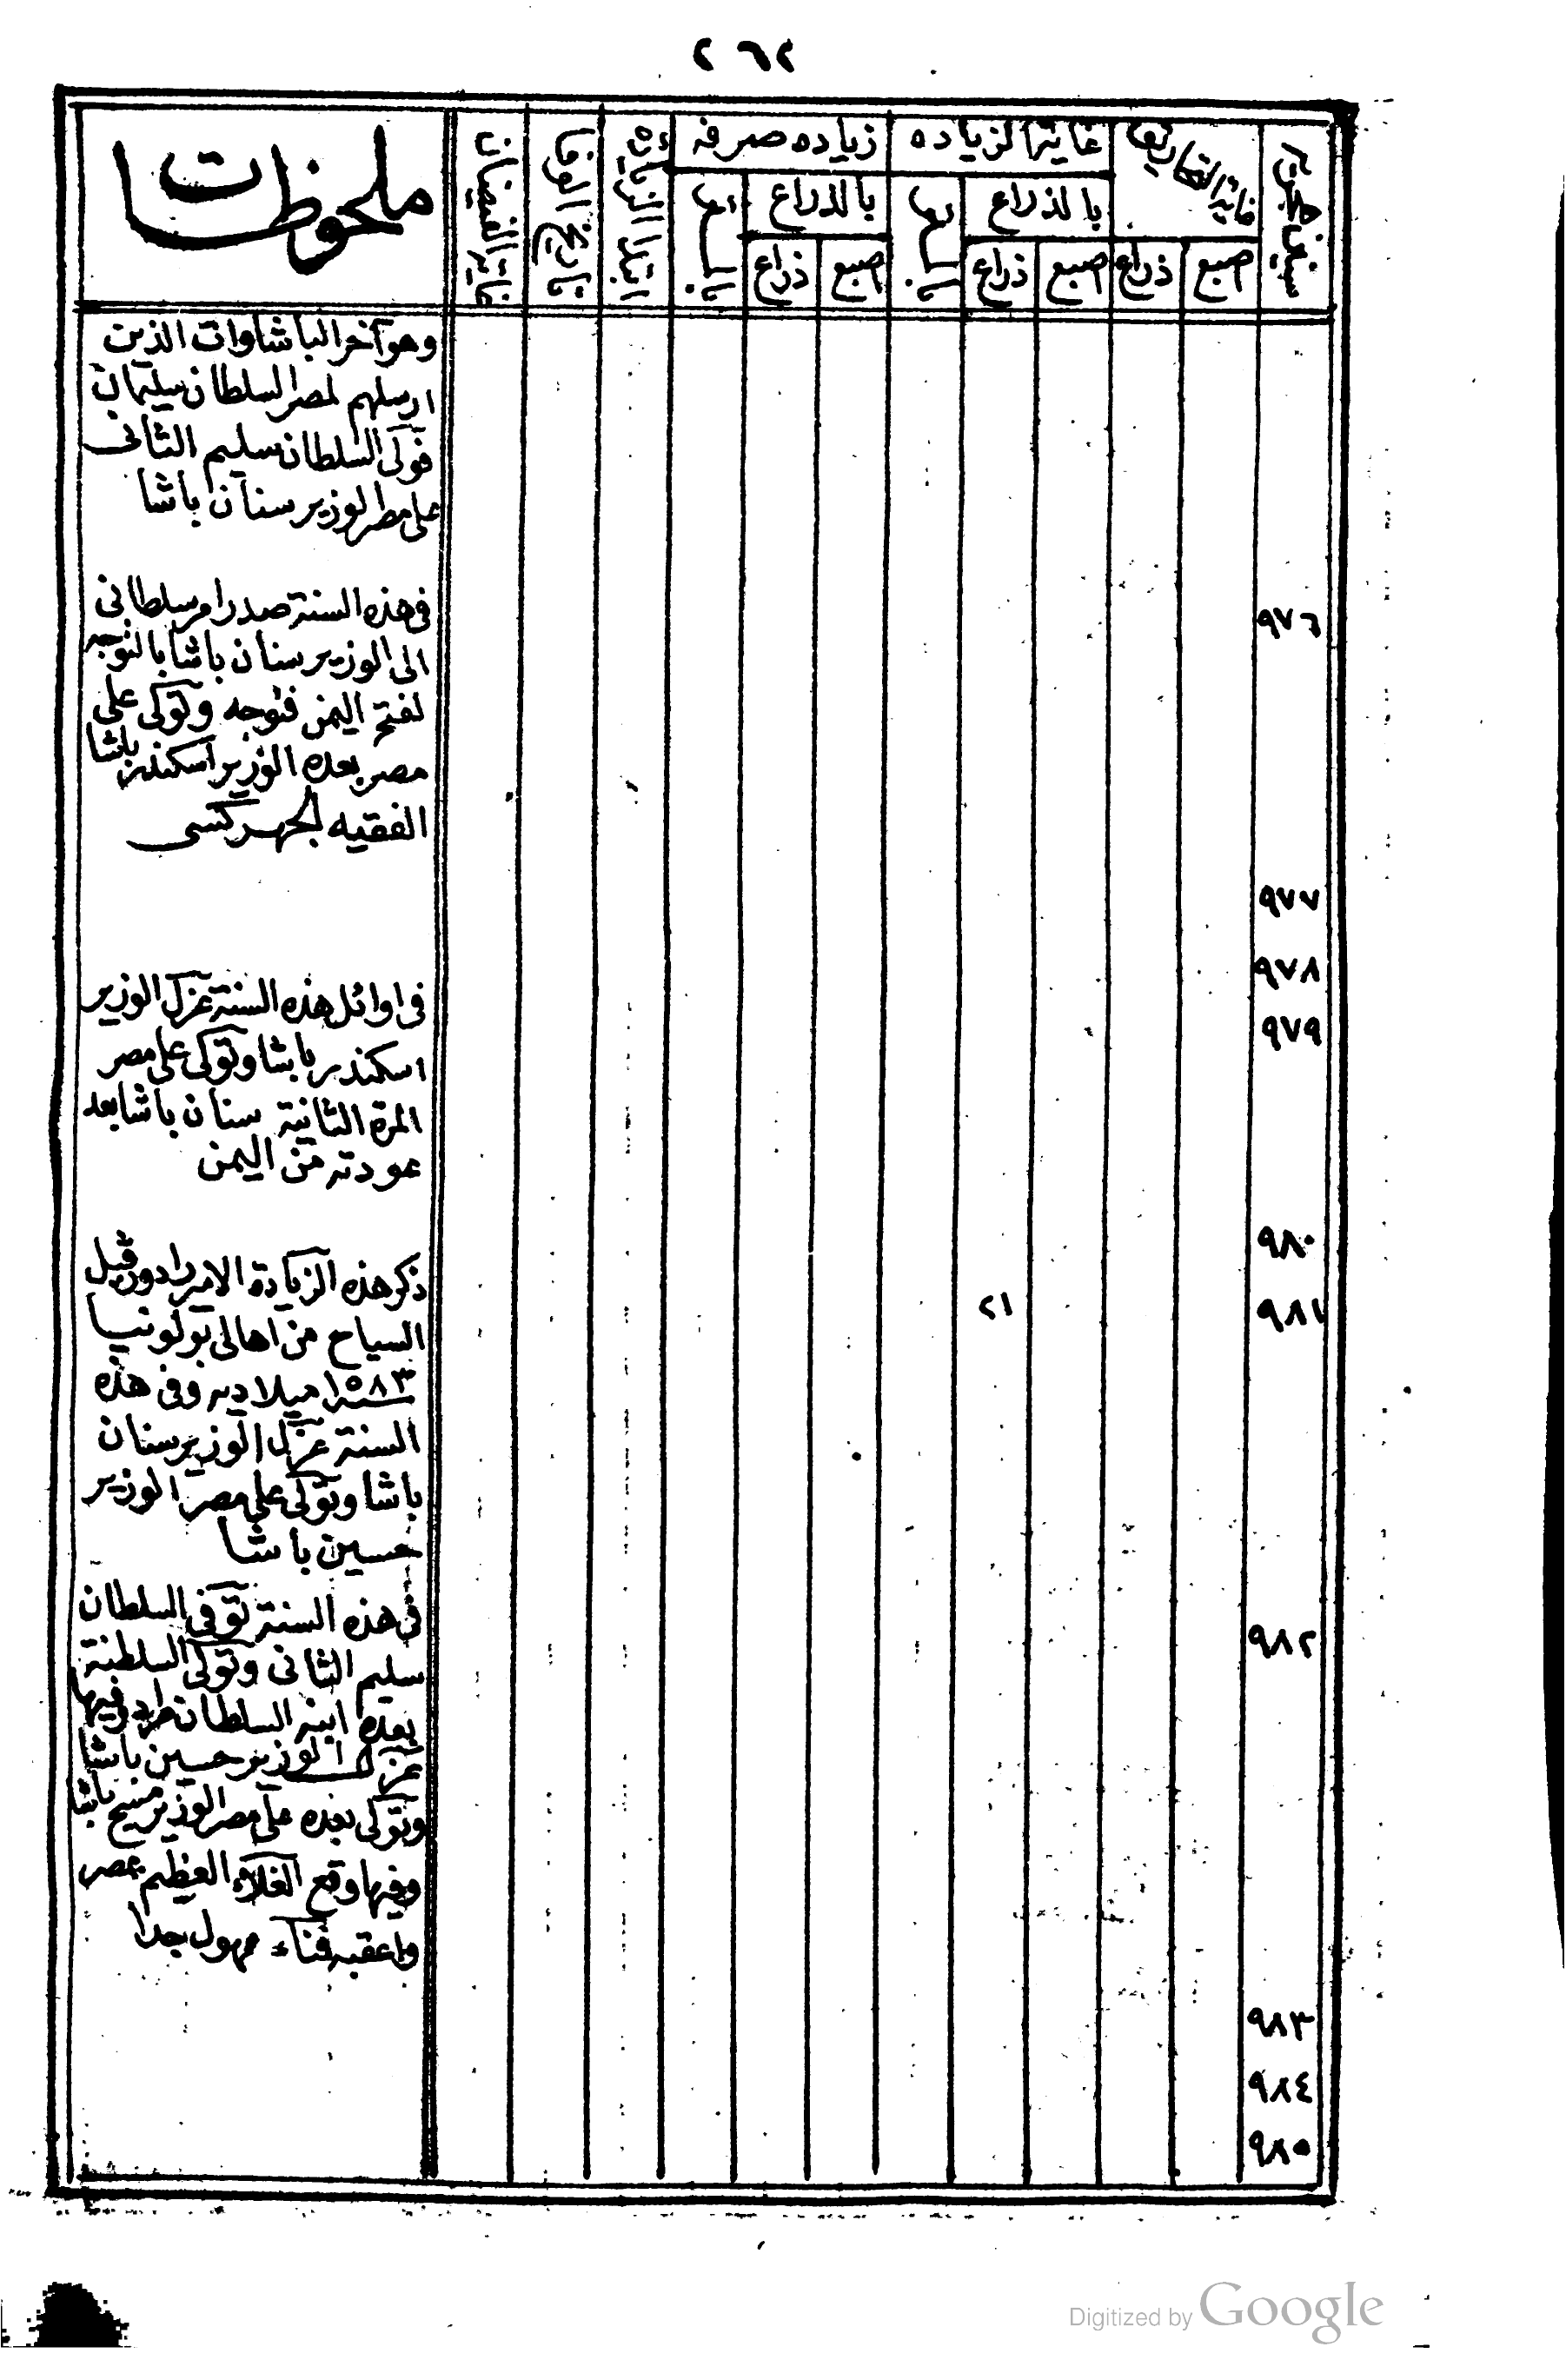 ٢٦٢
سنين هجرية
غاية التحاريق
اصبع
ذراع
غاية الزياده
بالذراع
اصبع
ذراع
زياده صرفه
بالذراع
اصبع
ذراع
ابتداء الزيادة
تاريخ الوفا
غاية الفيضان
ملحوظات
وهو آخر الباشاوات الذين
ارسلهم لمصر السلطان سليمان
فولى السلطان سليم الثانى
على مصر الوزير سنان باشا
٩٧٦
فى هذه السنة صدر امر سلطانى
الى الوزير سنان باشا بالتوجه
لفتح اليمن فتوجه وتولى على
مصر بعده الوزير اسكندر باشا
الفقيه الجهركسى
٩٧٧
٩٧٨
٩٧٩
فى اوائل هذه السنة عزل الوزير
اسكندر باشا وتولى على مصر
المرة الثانية سنان باشا بعد
عودته من اليمن
٩٨٠
٩٨١
٢١
ذكر هذه الزيادة الامير رادوزفيل
السياح من اهالى بولونيا
سنة ١٥٨٣ ميلاديه وفى هذه
السنة عزل الوزير سنان
باشا وتولى على مصر الوزير
حسين باشا
٩٨٢
فى هذه السنة توفى السلطان
سليم الثانى وتولى السلطنة
بعده ابنه السلطان مراد وفيها
عزل الوزير حسين باشا
وتولى بعده على مصر الوزير مسيح باشا
وفيها وقع الغلاء العظيم بمصر
واعقبه فناء مهول جدا
٩٨٣
٩٨٤
٩٨٥
Digitized by Google